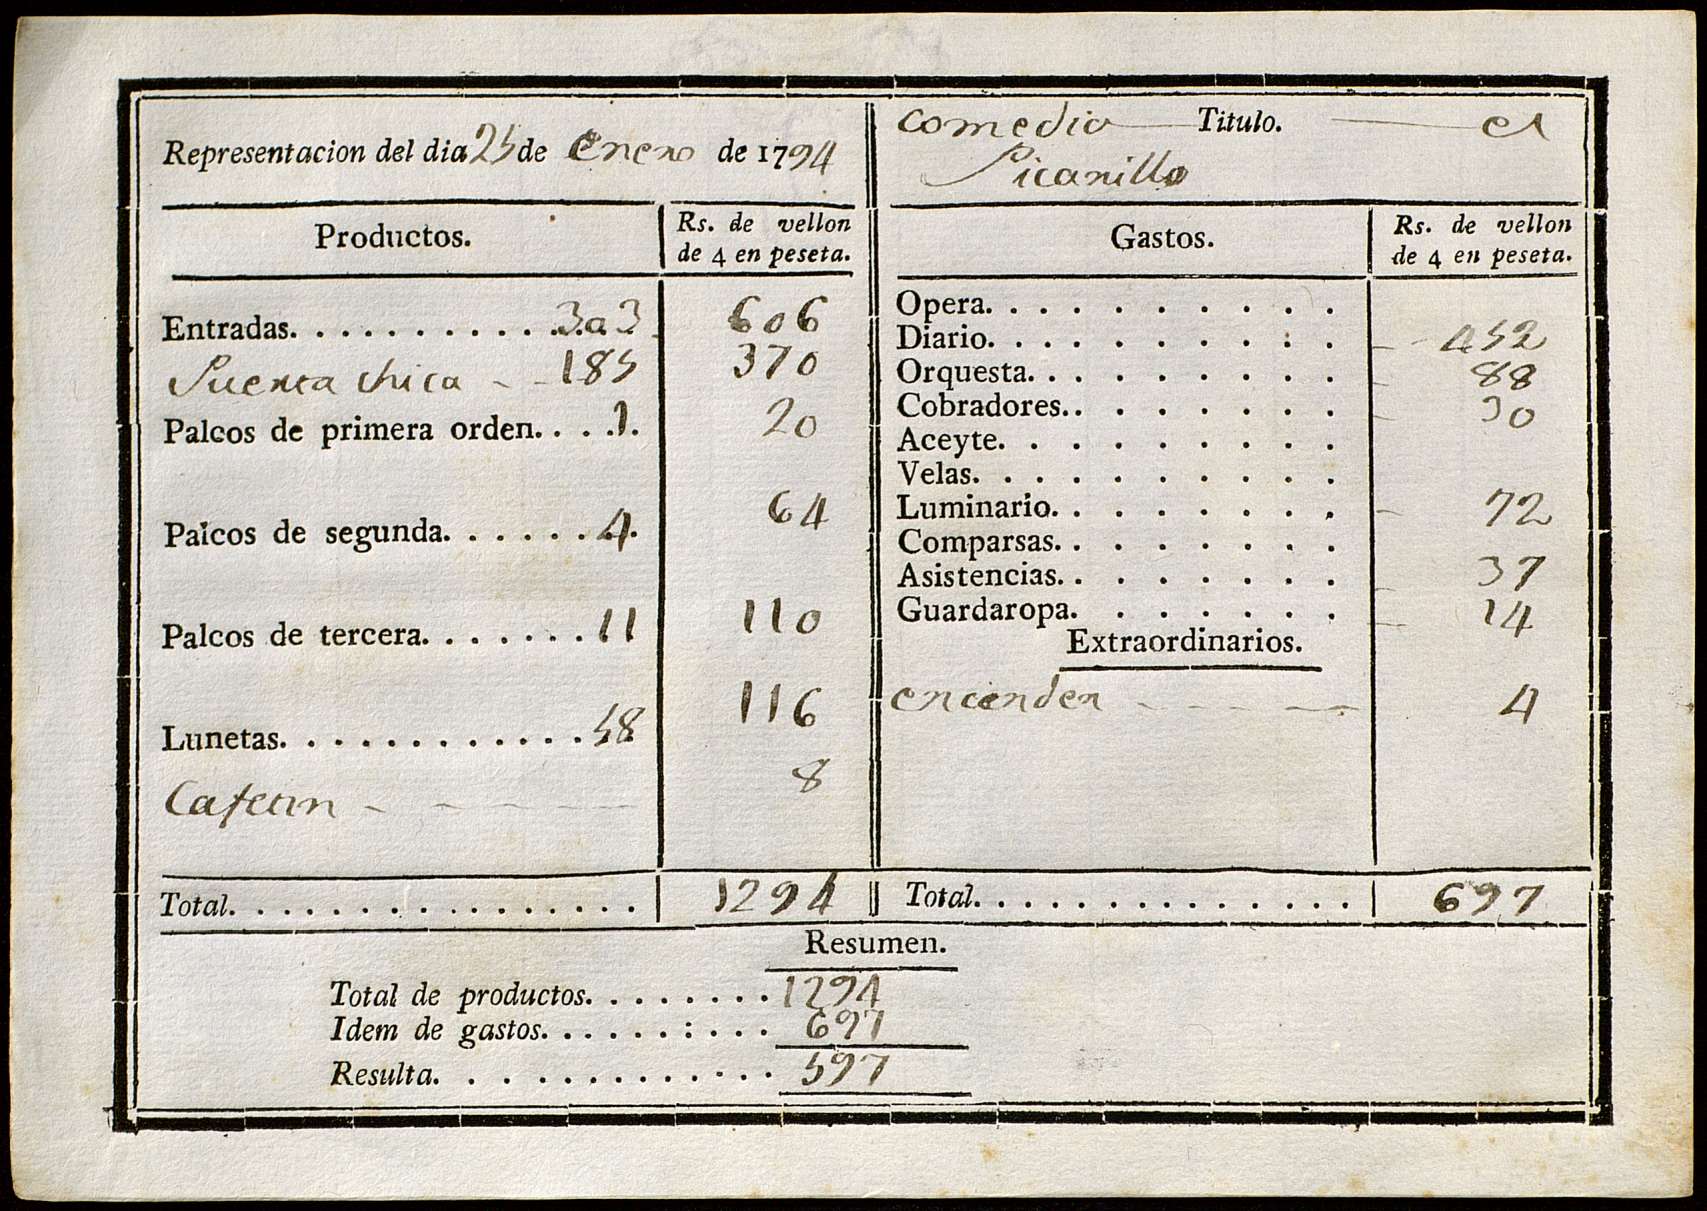 Representacion del dia 25 de Enero de 1794
comedia Titulo. el
Picarillo
Productos.
Rs. de vellon
de 4 en peseta.
Entradas. . . . . . . . . . . . 303 606
Puerta chica - - 185 370
Palcos de primera orden. . . . 1. 20
Palcos de segunda. . . . . . . 4. 64
Palcos de tercera. . . . . . . 11 110
Lunetas. . . . . . . . . . . . . 58 116
Cafetin - - - - 8
Total. . . . . . . . . . . . . . . . . 1294
Gastos.
Rs. de vellon
de 4 en peseta.
Opera. . . . . . . . . .
Diario. . . . . . . . . . 452
Orquesta. . . . . . . . . 88
Cobradores. . . . . . . . 30
Aceyte. . . . . . . . . .
Velas. . . . . . . . . . .
Luminario. . . . . . . . 72
Comparsas. . . . . . . .
Asistencias. . . . . . . . 37
Guardaropa. . . . . . . 14
Extraordinarios.
encender - - - - - 4
Total. . . . . . . . . . . . . . . 697
Resumen.
Total de productos. . . . . . . . 1294
Idem de gastos. . . . . . : . . . 697
Resulta. . . . . . . . . . . . . 597